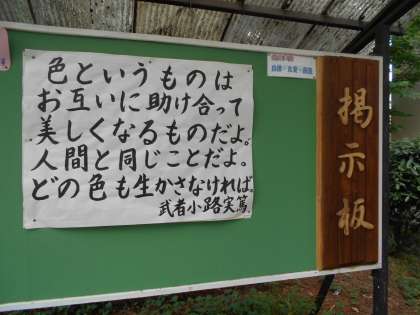 色というものは
お互いに助け合って
美しくなるものだよ。
人間と同じことだよ。
どの色も生かさなければ。
武者小路実篤
掲示板